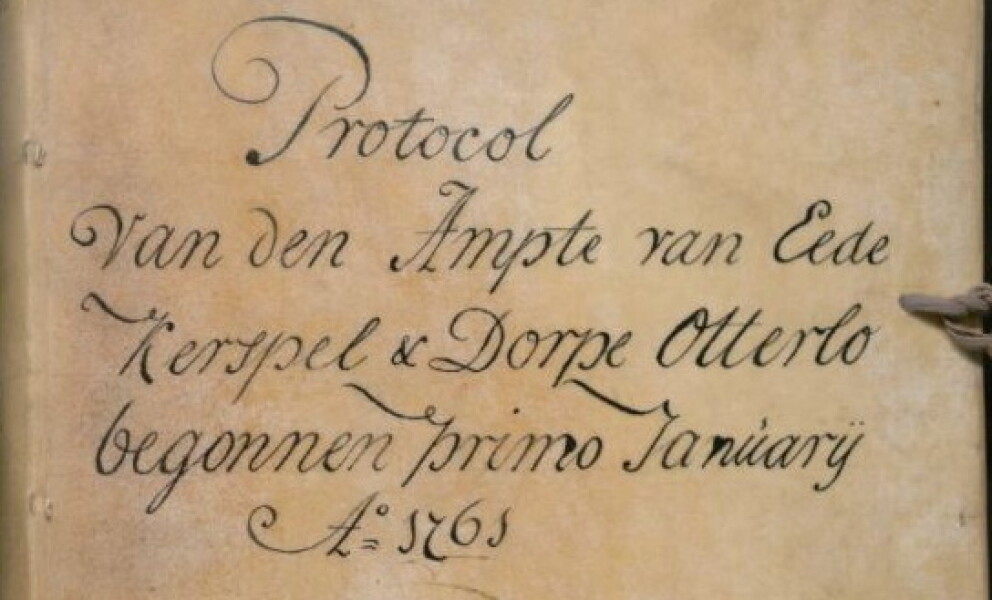 Protocol
Van den Ampte van Eede
Kerspel & Dorpe Otterlo
begonnen primo Januarÿ
Aº 1761